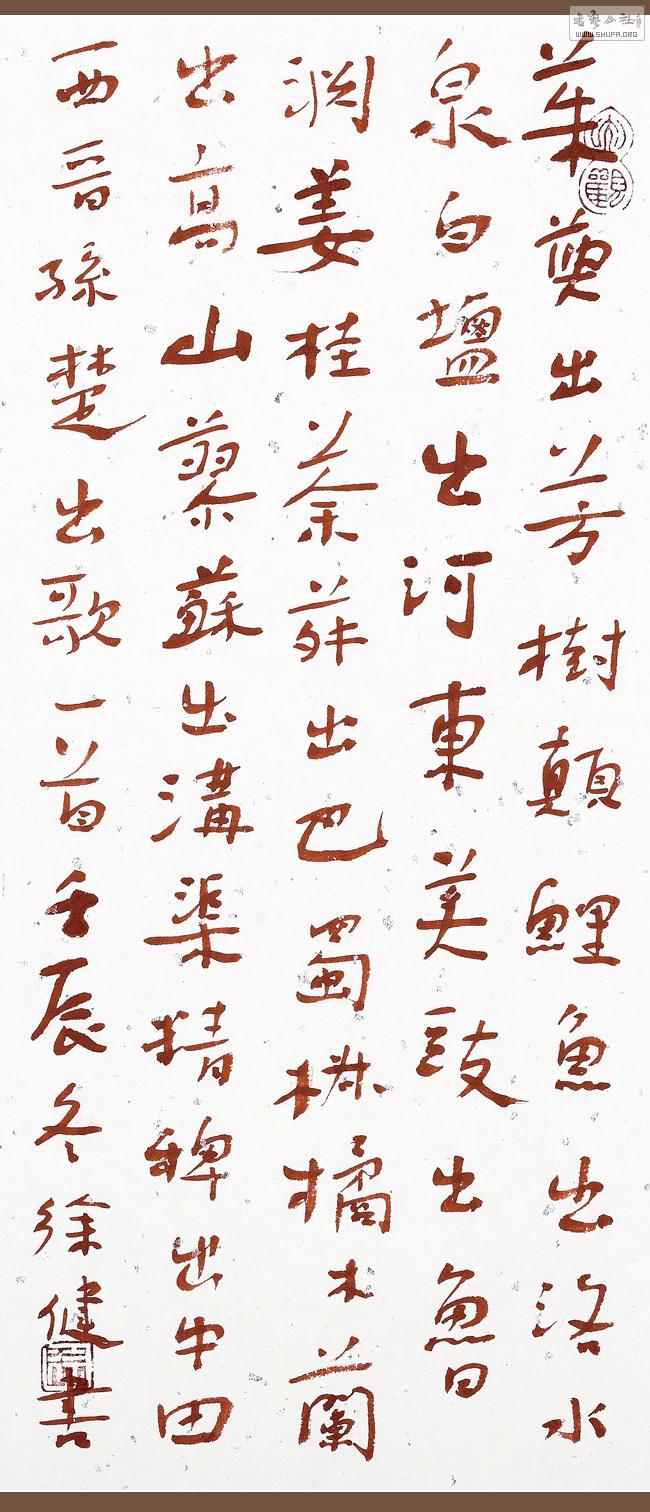 書藝公社
WWW.SHUFA.ORG
茱萸出芳樹顛鯉魚出洛水
泉白鹽出河東美豉出魯
渕姜桂茶荈出巴蜀椒橘木蘭
出高山蓼蘇出溝渠精稗出中田
西晋孫楚出歌一首壬辰冬徐健書